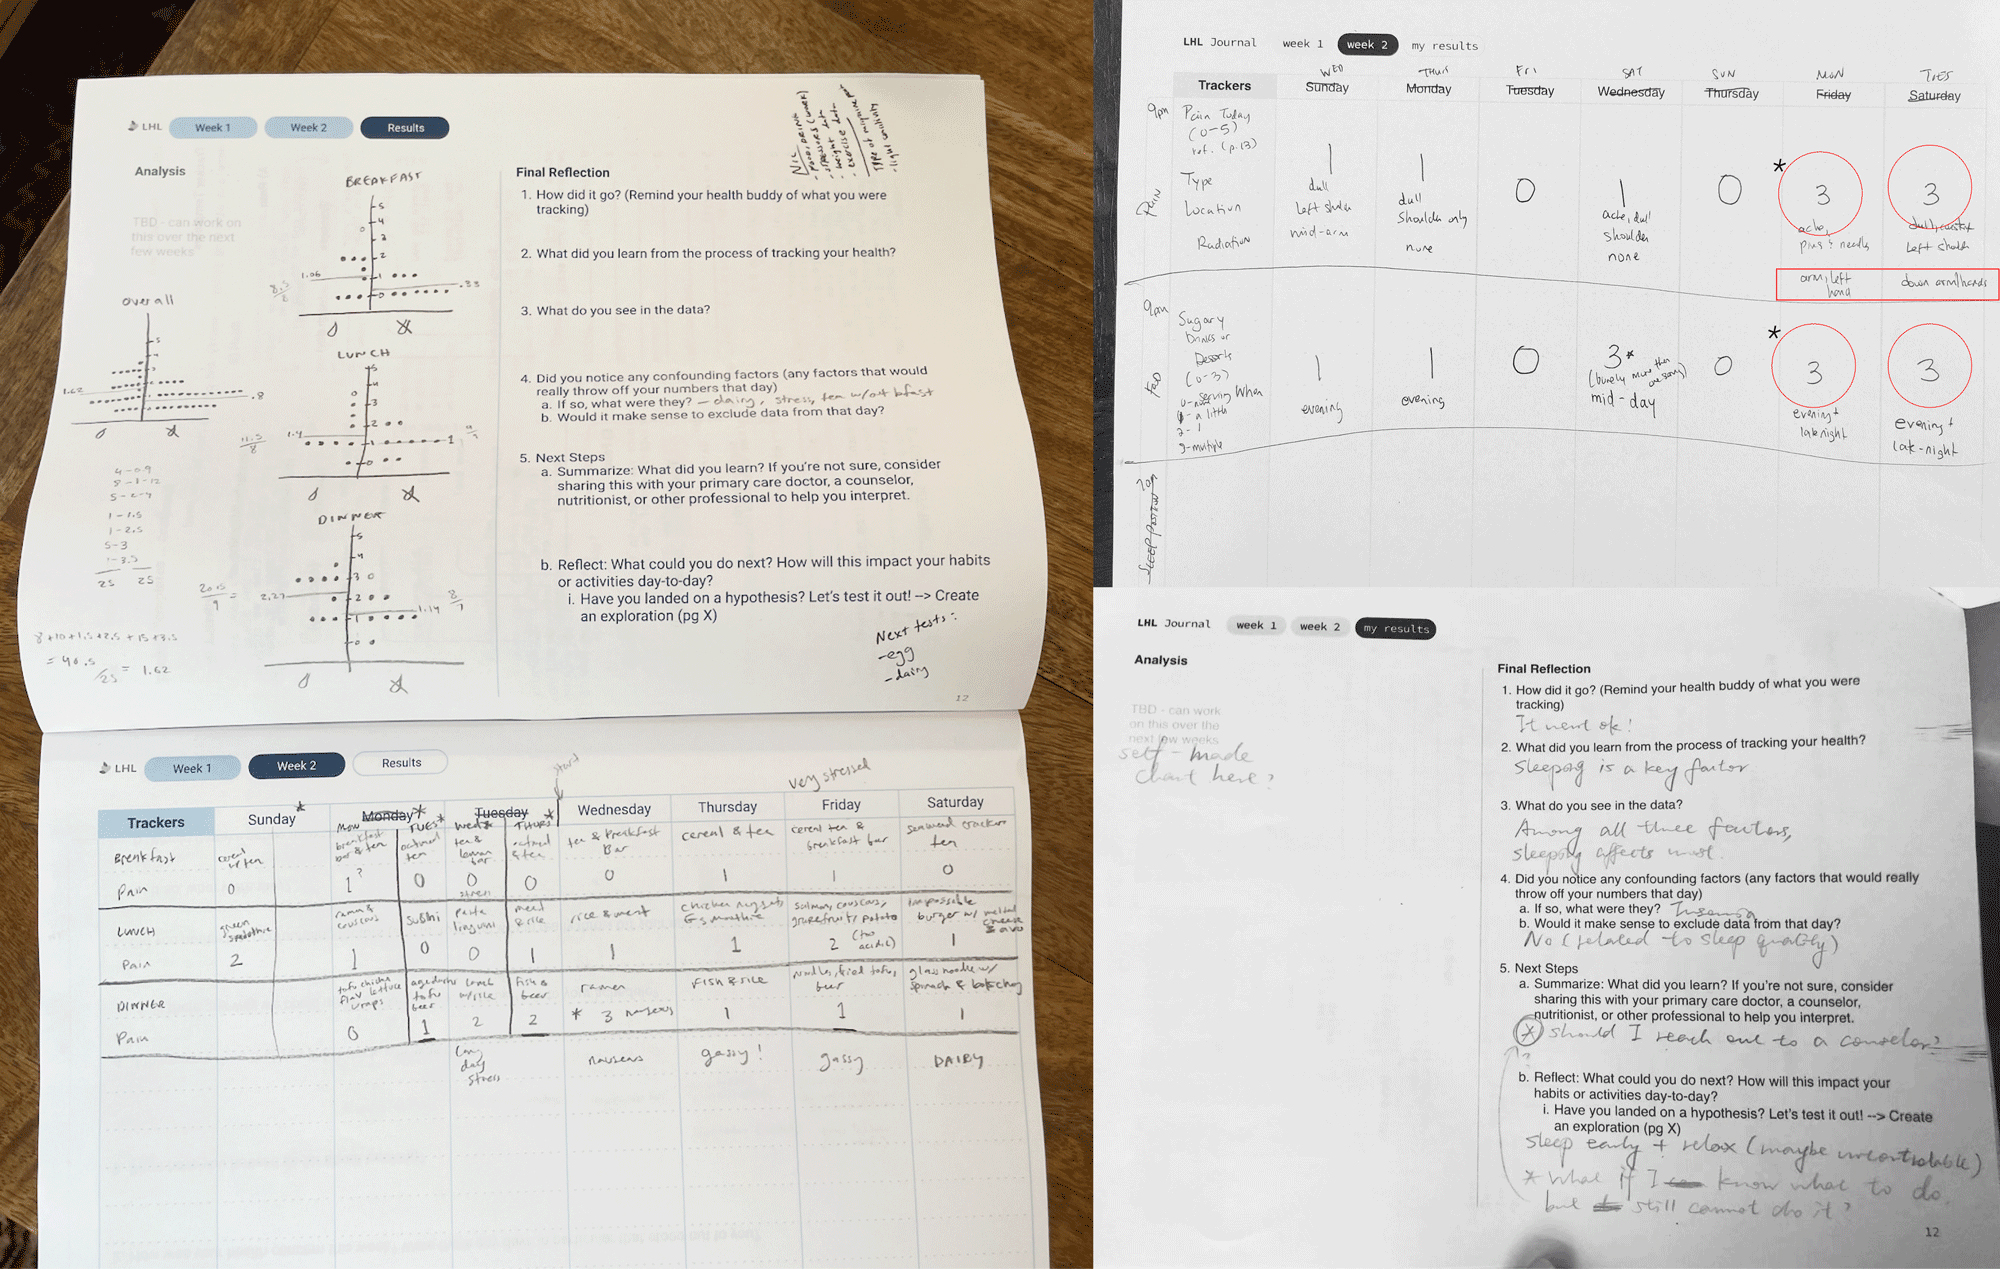 LHL Week 1 Week 2 Results
Analysis
TBD - can work on
this over the next
few weeks
BREAKFAST
5
4
3
2
1
0
1.06
8.5/8
.83
overall
1.62
.8
LUNCH
5
4
3
2
1
0
1.4
11.5/8
1
DINNER
5
4
3
2
1
0
20.5/9 = 2.27
1.14
8/7
4-0.9
8-1-12
1-1.5
1-2.5
5-3
1-3.5
25 25
8+10+1.5+2.5+15+3.5
= 40.5/25 = 1.62
N/C
- FOOD/DRINK
- stressors (work)
- weight data
- exercise data
Type of migraine
- light sensitivity
Final Reflection
1. How did it go? (Remind your health buddy of what you were
tracking)
2. What did you learn from the process of tracking your health?
3. What do you see in the data?
4. Did you notice any confounding factors (any factors that would
really throw off your numbers that day)
a. If so, what were they? - dairy, stress, tea w/out bfast
b. Would it make sense to exclude data from that day?
5. Next Steps
a. Summarize: What did you learn? If you're not sure, consider
sharing this with your primary care doctor, a counselor,
nutritionist, or other professional to help you interpret.
b. Reflect: What could you do next? How will this impact your habits
or activities day-to-day?
i. Have you landed on a hypothesis? Let's test it out! --> Create
an exploration (pg X)
Next tests:
- egg
- dairy
12
LHL Week 1 Week 2 Results
start
very stressed
Trackers Sunday* Monday* Tuesday* Wednesday Thursday Friday Saturday
MON TUES* Wed* THURS
Breakfast cereal w/ tea breakfast bar & tea oatmeal tea tea & lemon bar oatmeal & tea tea & breakfast Bar cereal & tea cereal tea & breakfast bar seaweed crackers tea
Pain 0 1? 0 0 stress 0 0 1 1 0
LUNCH green smoothie ramen & couscous sushi pasta linguini meat & rice rice & meat chicken nuggets & smoothie salmon, couscous, grapefruit, potato impossable burger w/ melted cheese & avo
Pain 2 1 0 0 1 1 1 2 (too acidic) 1
DINNER tofu chicken lettuce wraps agedashi tofu beer w/rice fish & beer ramen FISH & rice noodles, fried tofu, beer glass noodle w/ spinach & bokchoy
Pain 0 1 2 2 * 3 nauseas 1 1 1
Long day stress nauseas gassy! gassy DAIRY
LHL Journal week 1 week 2 my results
WED THUR FRI SAT SUN MON TUES
Trackers Sunday Monday Tuesday Wednesday Thursday Friday Saturday
9pm Pain Today
(0-5)
ref. (p.13)
PAIN
1 1 0 1 0 * 3 3
Type dull dull ache, dull ache, pins & needles dull, constant
Location Left shoulder Shoulder only shoulder Left should
Radiation mid-arm none none arm, left hand down arm/hands
9pm Sugary
Drinks or
Desserts
(0-3)
FOOD
0-none
1-a little
2-1 serving
3-multiple
When
1 1 0 3* 0 * 3 3
(barely more than one serving)
evening evening mid-day evening + late night evening + late-night
SLEEP POSITION
LHL Journal week 1 week 2 my results
Analysis
TBD - can work
on this over the
next few weeks
self-made
chart here?
Final Reflection
1. How did it go? (Remind your health buddy of what you were
tracking)
It went ok!
2. What did you learn from the process of tracking your health?
Sleeping is a key factor
3. What do you see in the data?
Among all three factors,
sleeping affects most.
4. Did you notice any confounding factors (any factors that would really
throw off your numbers that day)
a. If so, what were they? Insomnia
b. Would it make sense to exclude data from that day?
No (related to sleep quality)
5. Next Steps
a. Summarize: What did you learn? If you're not sure, consider
sharing this with your primary care doctor, a counselor,
nutritionist, or other professional to help you interpret.
* should I reach out to a counselor?
b. Reflect: What could you do next? How will this impact your
habits or activities day-to-day?
i. Have you landed on a hypothesis? Let's test it out! --> Create
an exploration (pg X)
Sleep early + relax (maybe uncontrolable)
* What if I know what to do
but still cannot do it?
12